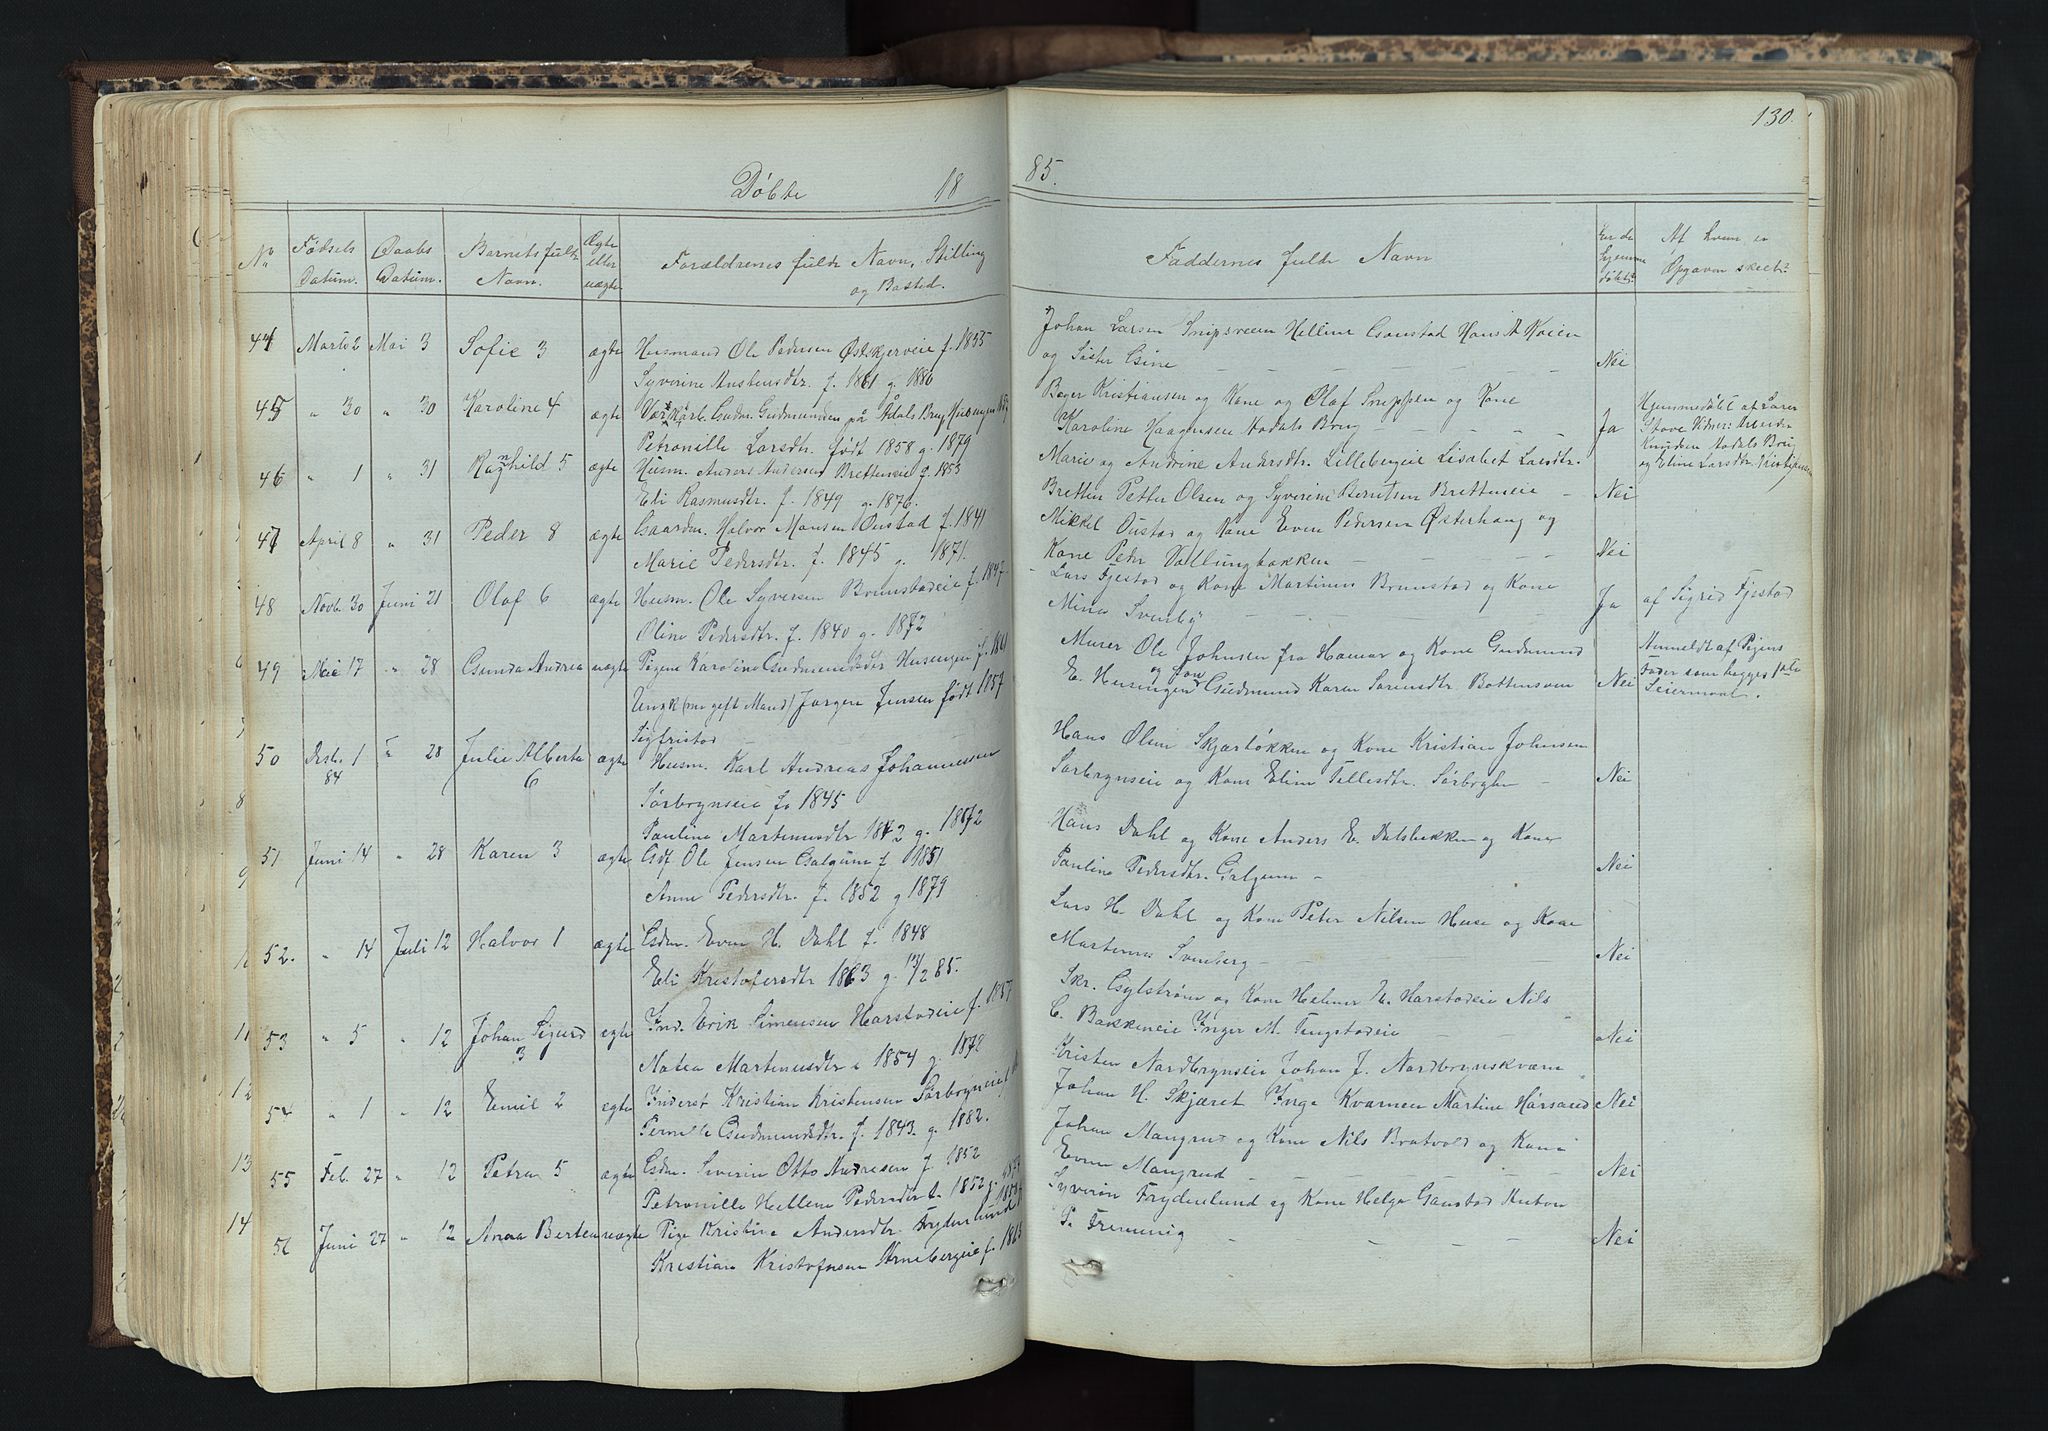 130.
Döbte 18 85.
No Fødsels Datum. Daabs Datum. Barnets fulde Navn. Ægte eller uægte Forældrenes fulde Navn, Stilling og Bosted.
Faddernes fulde Navn
Er de hjemme døbt? Af hvem er Opgaven skeet?
44 Marts 2 Mai 3 Sofie 3 ægte Husmand Ole Pedersen Østskjerveie f. 1855
Syverine Austensdtr. f. 1861 g. 1880
Johan Larsen Snipsveen Helline Gaustad Hans A Moien
og Søster Gine Nei
45 " 30 " 30 Karoline 4 ægte Gudm. Gudmundsen på Ådals Brug Husengen
Petronille Larsdtr. født 1858 g. 1879
Kristiansen og Kone og Olaf Snippen og Kone
Karoline Haagensen Aadals Brug Ja
Hjemmedøbt af
Knudsen Aadals Brug
og Eline Larsdtr. Kristiansen
46 " 1 " 31 Ragnhild 5 ægte Husm. Anders Andersen Bretteneie f. 1853
Eli Rasmusdtr. f. 1849 g. 1876.
Marie og Andrine Andersdtr. Lillebergeie Lisabet Larsdtr.
Bretten Petter Olsen og Syverine Berntsen Bretteneie Nei
47 April 8 " 31 Peder 8 ægte Gaardm. Halvor Monsen Oustad f. 1841
Marie Pedersdtr. f. 1845 g. 1871.
Mikkel Oustad og Kone Even Pedersen Østerhaug og
Kone Peder Vollungbakken Nei
48 Novb. 30 Juni 21 Olaf 6 ægte Husm. Ole Syversen Brunstadeie f. 1847
Oline Pedersdtr. f. 1840 g. 1872
Lars Fjestad og Kone Martinus Brunstad og Kone
Mina Svenby Ja af Sigrid Fjestad
49 Mai 17 " 28 Gunda Andrea uægte Pigen Karoline Gudmundsdtr Husengen f. 1861
Ungk (nu gift Mand) Jørgen Jensen født 1857
Sigfristad
Murer Ole Johnsen fra Hamar og Kone Gudmund
E. Husengen og Søn Gudmund Karen Sørensdtr. Bottensven Nei
Anmeldt af Pigens
Fader som bygges 1ste
Leiermaal.
50 Desb. 1 84 " 28 Julie Alberta 6 ægte Husm. Karl Andreas Johannessen
Sörbrynseie f. 1845
Pauline Martinusdtr 1842 g. 1872
Hans Olsen Skjærløkken og Kone Kristian Johnsen
Sørbrynseie og Kone Eline Tellesdtr. Nei
51 Juni 14 " 28 Karen 3 ægte Gdf Ole Jensen Galgum f 1851
Anne Pedersdtr. f. 1852 g 1879
Hans Dahl og Kone Anders E. Dalsbakken og Kone
Pauline Pedersdtr. Galgum Nei
52. " 14 Juli 12 Halvor 1 ægte Gdm. Even H. Dahl f. 1848
Eli Kristofersdtr 1863 g. 12/2 85.
Lars H. Dahl og Kone Peter Nilsen Huse og Kone
Martinus Svenberg Nei
53 " 5 " 12 Johan Sigurd 3 ægte Ind. Erik Simensen Harstadeie f. 1857
Matea Martinusdtr 1854 g. 1878
Skr. Gylstrøm og Kone Helmer Th. Harstadeie Nils
C. Bakkeneie Inger M. Tingstadeie Nei
54 " 1 " 12 Emil 2 ægte Inderst Kristian Kristensen Sørbrynseie
Pernille Gudmundsdtr. f. 1843. g. 1882.
Kristen Nordbrynseie Johan J. Nordbrynskværn
Johan H. Skjæret Inga Kvarnen Martine Nei
55 Feb. 27 " 12 Petra 5 ægte Gdm. Siverin Otto Andresen f. 1852
Petronille Hellene Pedersdtr f. 1852 g.
Johan Mangrud og Kone Nils Bratvold og Kone
Even Mangrud Nei
56 Juni 27 " 12 Anna Berte uægte Pige Kristine Andersdtr. Frydenlund
Kristian Kristofersen Arnebergeie f. 1865
Syverin Frydenlund og Kone Helga Gaustad Anton
P. Nei